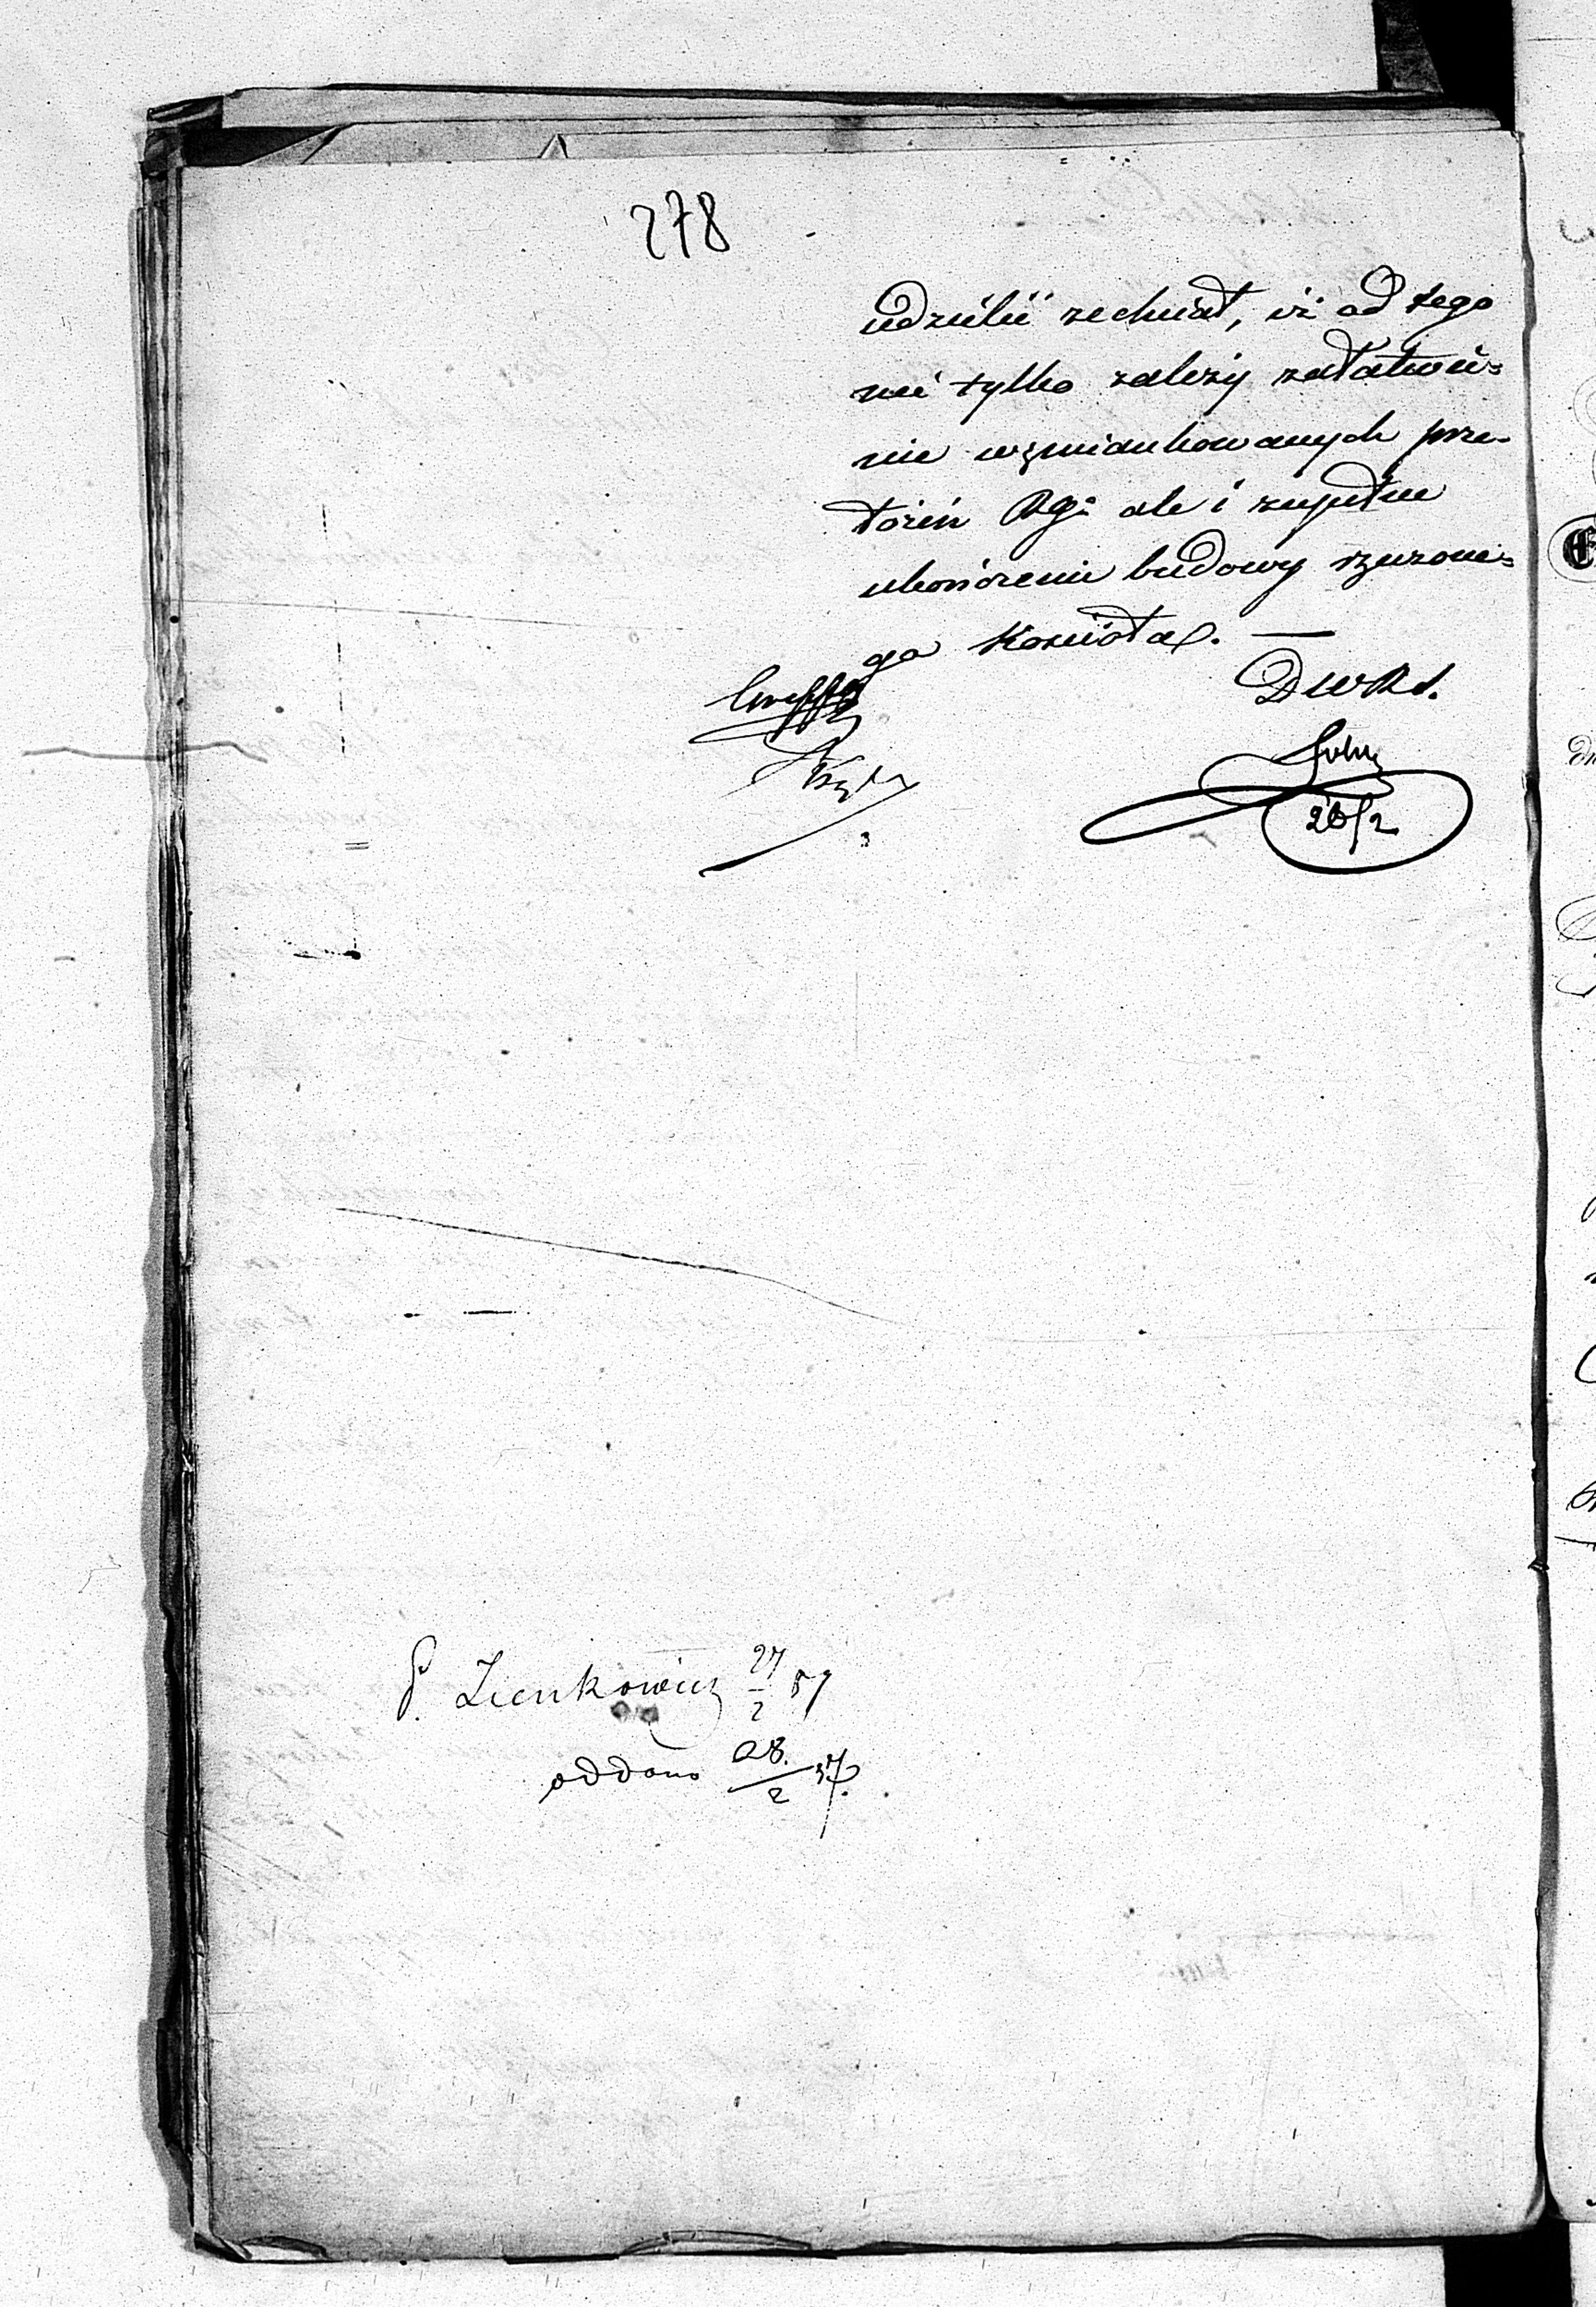 278
udzielić zechciał, iż od tego
nie tylko zależy załatwie=
nie wzmiankowanych prze-
łożeń Rg: ale i zupełne
ukończenie budowy rzeczone=
go Kościoła. —
26/2
P. Zienkowicz 27/2 57
oddano 28./2 57.